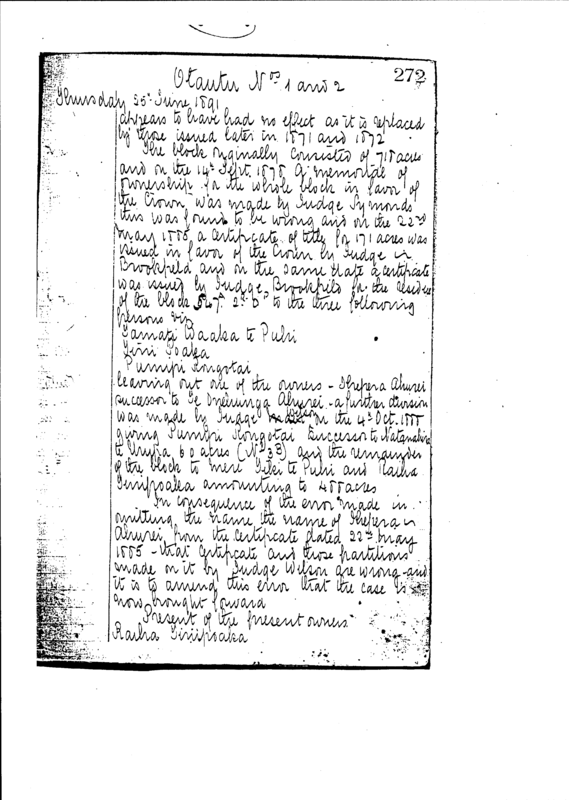 272
Otautu Nos 1 and 2
Thursday 25th June 1891
appears to have had no effect as it is replaced
by those issued later in 1871 and 1872
The block originally consisted of 718 acres
and on the 14th Sept. 1878 a memorial of
ownership for the whole block in favor of
the Crown was made by Judge Symonds
this was found to be wrong and on the 22nd
May 1885 a certificate of title for 171 acres was
issued in favor of the Crown by Judge
Brookfield and on the same date a certificate
was issued by Judge Brookfield for the residue
of the block 547a 2r 0p to the three following
persons viz
Tamati Waaka te Puhi
Poaka
Pumipi Kongotai
leaving out one of the owners - Ahurei
successor to Te Ahurei - a further division
was made by Judge Wilson on the 4th Oct. 1888
giving Pumipi Kongotai successor to
te 60 acres (No 3B) and the remainder
of the block to mere te Puhi and Raiha
Tinipoaka amounting to 488 acres
In consequence of the error made in
omitting the name the name of
Ahurei from the certificate dated 22nd May
1885 - that certificate and those partitions
made on it by Judge Wilson are wrong and
it is to amend this error that the case is
now brought forward
Present of the present owners
Raiha Tinipoaka